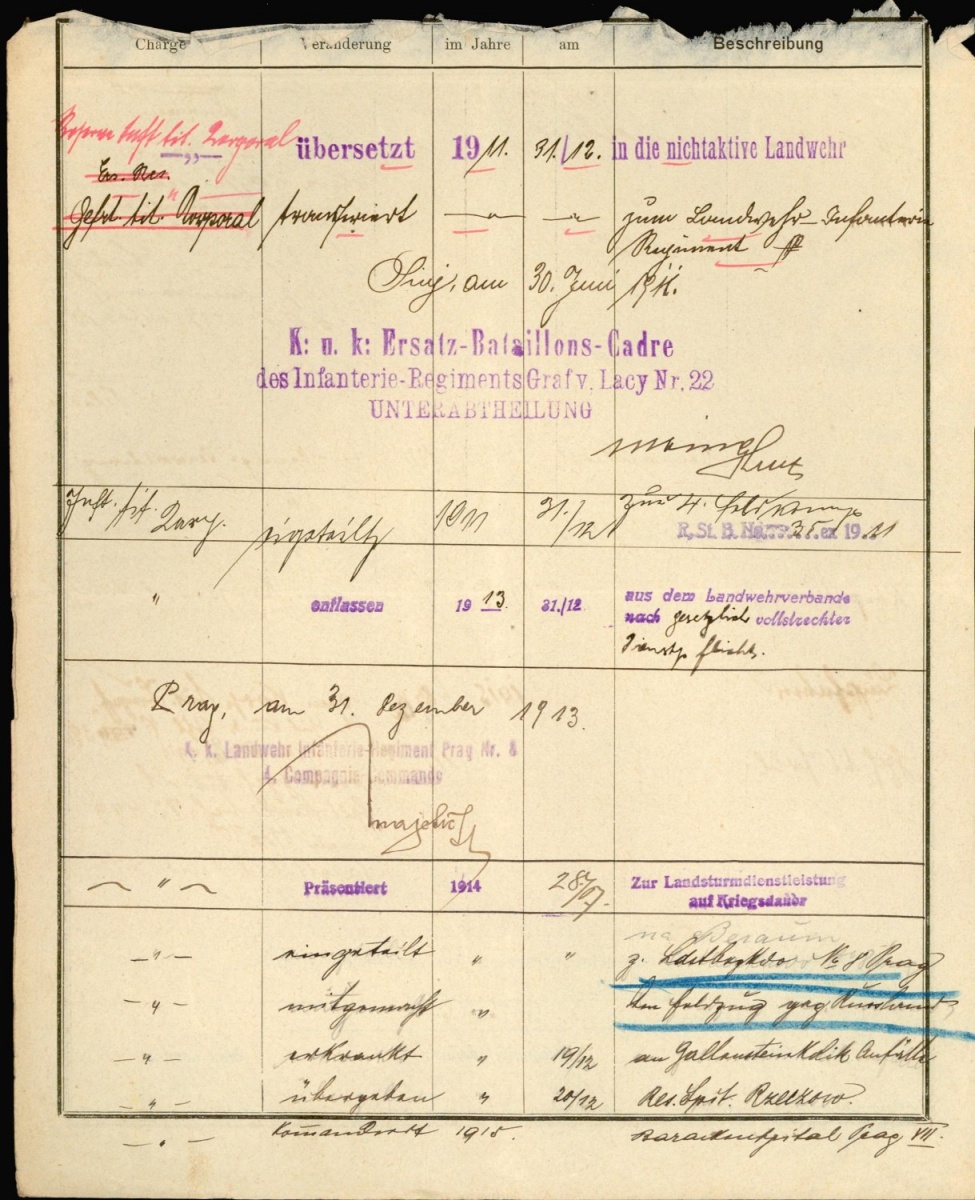 Charge Veränderung im Jahre am Beschreibung
Reserve Inft. tit. Korporal übersetzt 1911. 31./12. in die nichtaktive Landwehr
Ers. Res.
Gefrt. tit. Korporal transferiert — " — — " — zum Landwehr-Infanterie
Regiment
Sinj, am 30. Juni 1911.
K: u. k: Ersatz-Bataillons-Cadre
des Infanterie-Regiments Graf v. Lacy Nr. 22
UNTERABTHEILUNG
Inft. tit. Korp. eigeteilt 1911 31./12 zur 4. Feldkomp
R. St. B. No. 35 ex 1911
" entlassen 1913. 31./12 aus dem Landwehrverbande
nach gesetzlich vollstreckter
Dienstpflicht.
Prag, am 31. Dezember 1913.
k. k. Landwehr Infanterie-Regiment Prag Nr. 8
4. Compagnie Commando
" Präsentiert 1914 28/07. Zur Landsturmdienstleistung
auf Kriegsdauer
na Beraun
— " — eingeteilt " " z. Ldstbzkdo No 8 Prag
— " — mitgemacht " den Feldzug geg Russland
— " — erkrankt " 19/12 an Gallensteinkolik Anfälle
— " — übergeben " 20/12 Res. Spit. Rzeszow.
— " — 1915. Barackenspital Prag VII.